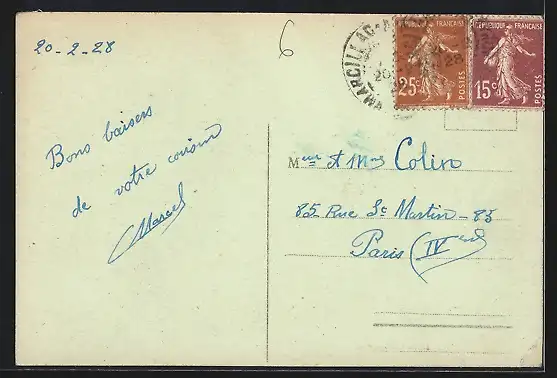 20-2-28
6
MARCILLAC
20
28
REPUBLIQUE FRANÇAISE
25c
POSTES
REPUBLIQUE FRANÇAISE
15c
POSTES
Bons baisers
de votre cousin
Marcel
Meur et Mme Colin
85 Rue St Martin - 85
Paris (IVème)